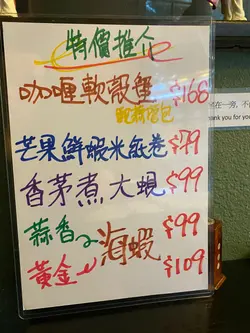 特價推介
咖喱軟殼蟹 $168
配蒜蓉包
芒果鮮蝦米紙卷 $79
香茅煮大蜆 $99
蒜香 海蝦 $99
黃金 $109
在一旁，不
hank you for yo